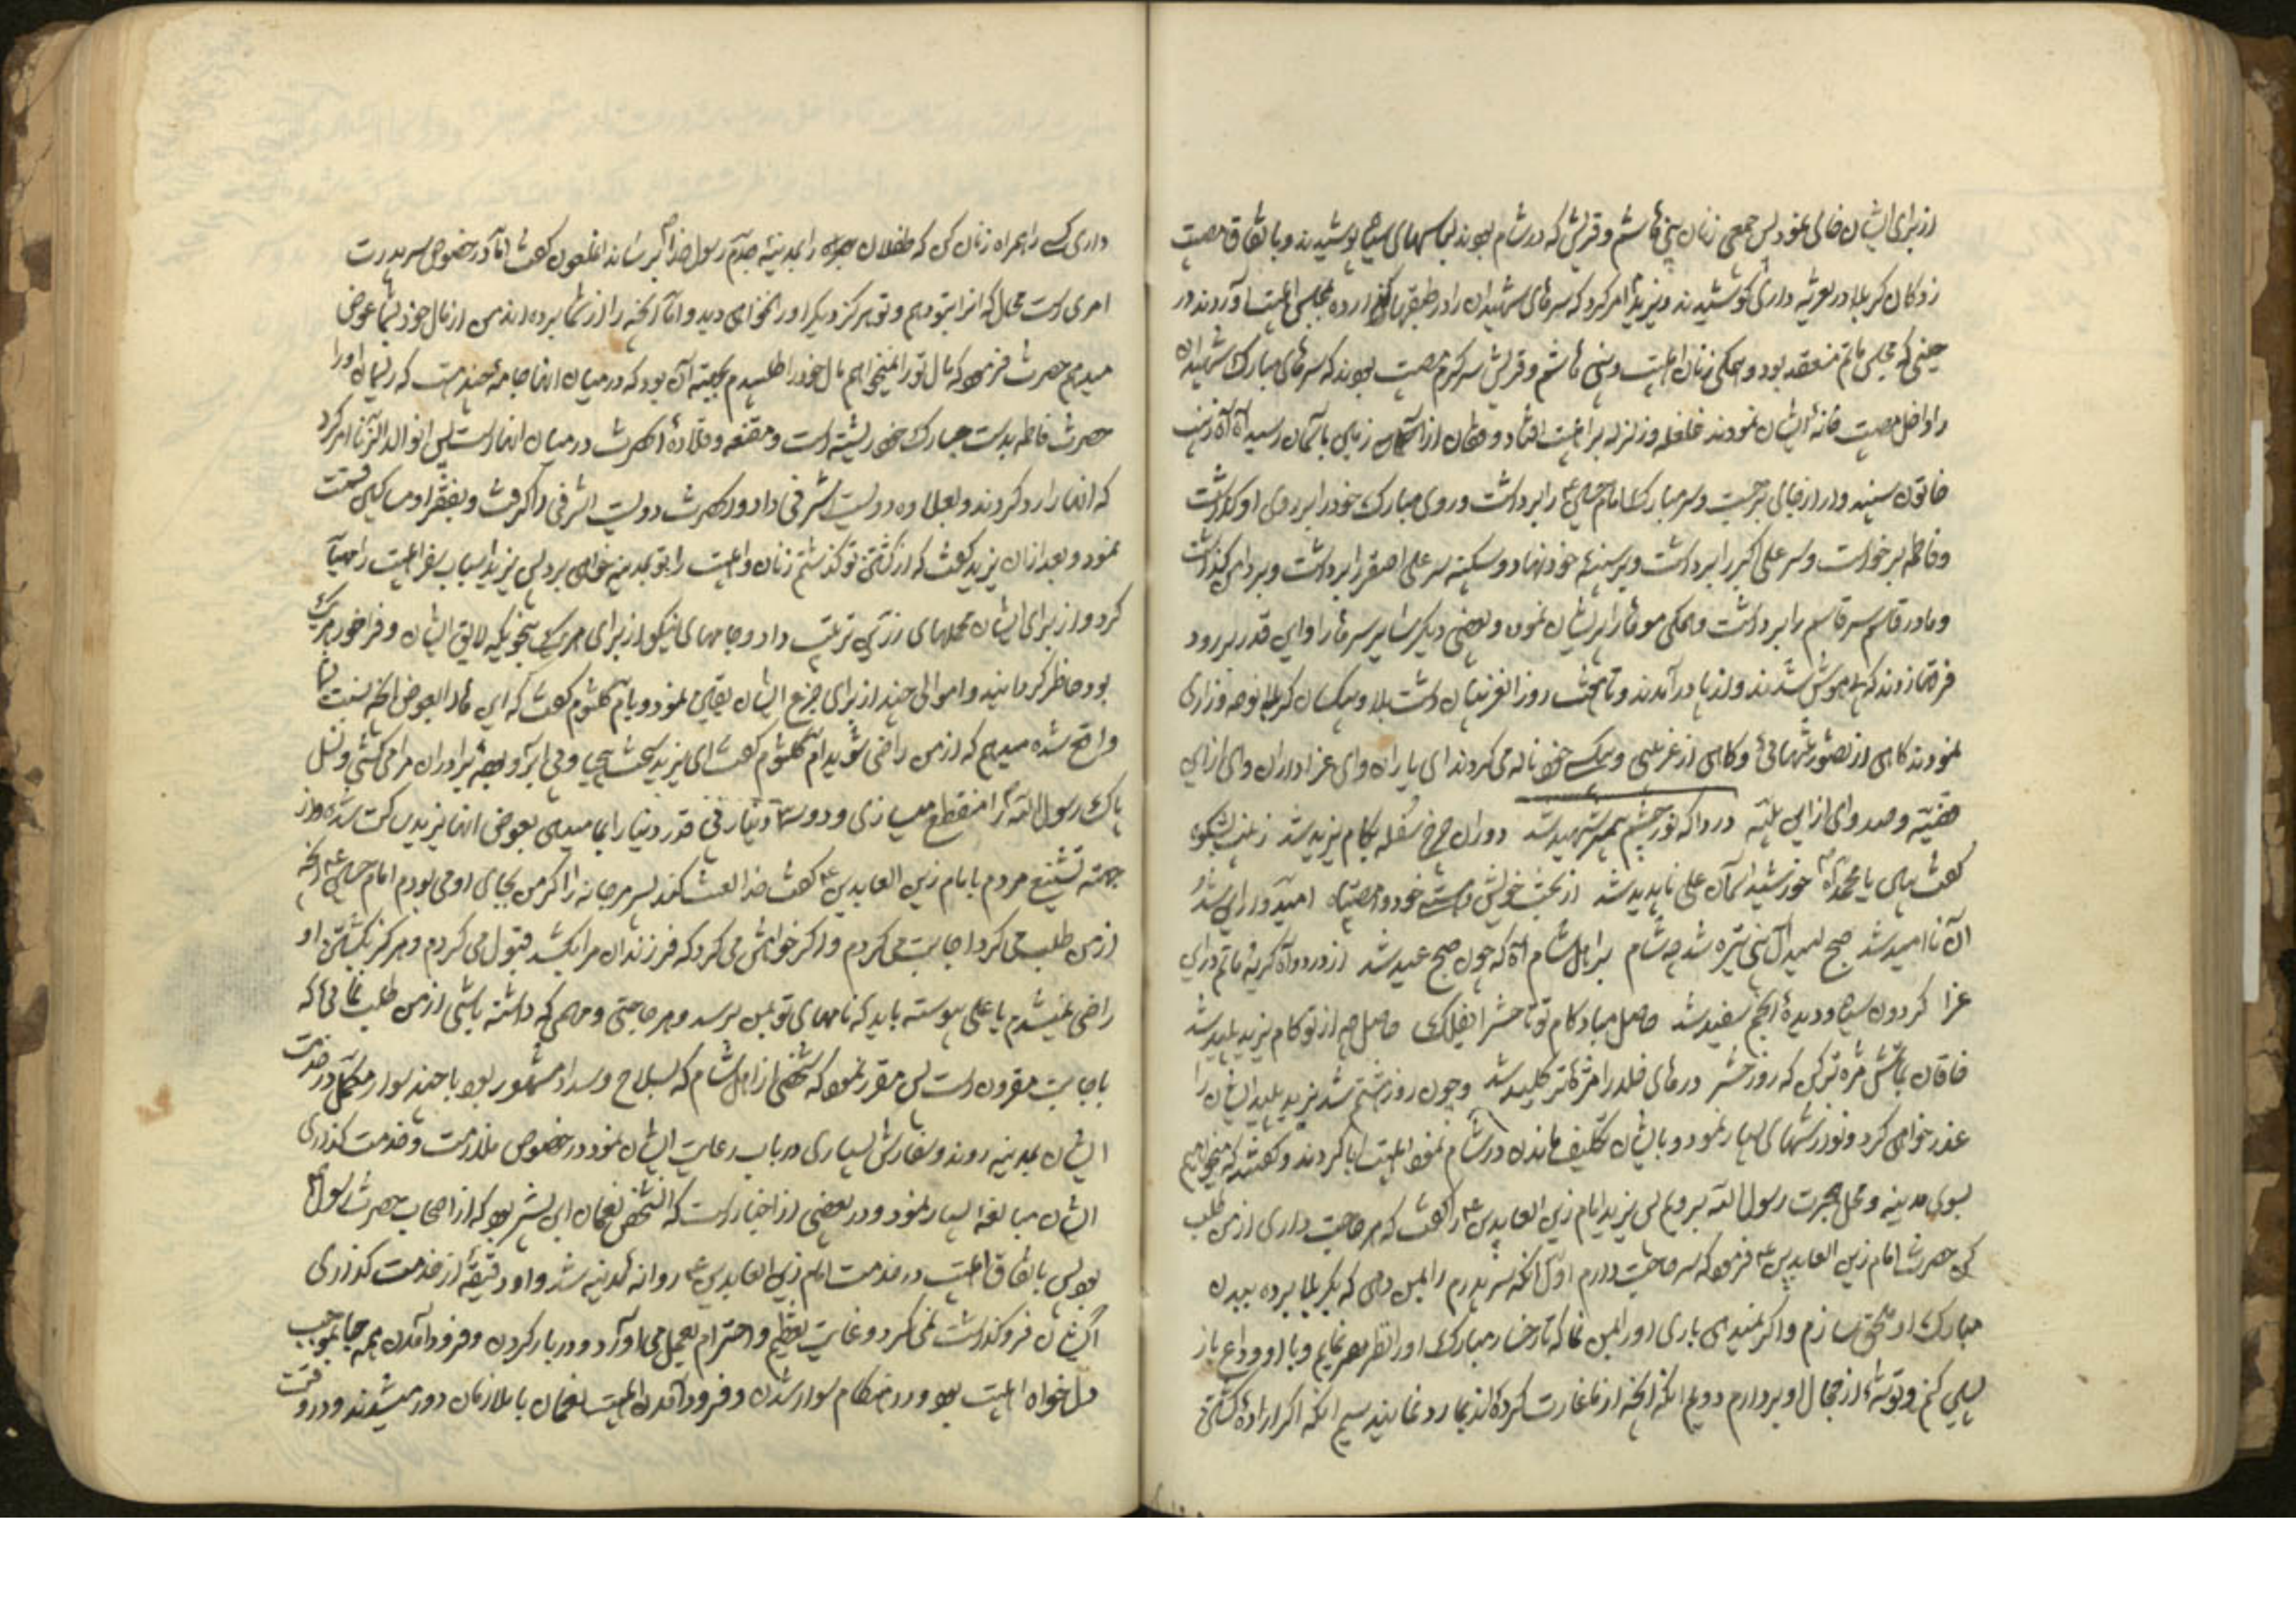 از برای ایشان خالی نمود پس جمعی زنان بنی هاشم و قریش که در شام بودند لباسهای سیاه پوشیدند و باتفاق مصیبت
زدکان کربلا در تعزیه داری کوشیدند و یزید امر کرد که سرهای شهیدان را در طبقها کذارده بمجلس اهلبیت آوردند در
حینی که مجلس ماتم منعقد بود و همکی زنان اهلبیت و بنی هاشم و قریش سرکرم مصیبت بودند که سرهای مبارک شهیدان
را داخل مصیبت خانهٔ ایشان نمودند غلغله و زلزله بر اهلبیت افتاد و فغان از زمین باسمان رسید آه آه زینب
خاتون سپند وار از جای برجست و سر مبارک امام حسین را برداشت و روی مبارک خود را بر روی او کذاشت
و فاطمه برخواست و سر علی اکبر را برداشت و بر سینهٔ خود نهاد و سکینه سر علی اصغر را برداشت و بر دامن کذاشت
و مادر قاسم سر قاسم را برداشت و همکی موها را پریشان نمود و بعضی دیکر سایر سرها را و این قدر بر رو
فرق زدند که بیهوش شدند و از پا در آمدند و تا هشت روز آن غریبان دشت بلا و بیکسان کربلا نوحه و زاری
نمودند کاهی از تصور تنهائی و کاهی از غریبی و بیکسی خود ناله می کردند ای یاران وای عزاداران وای از این
قضیه و صد وای از این بلیه دردا که نور چشم پیمبر شهید شد دوران چرخ سفله بکام یزید شد زینب بشکوه
کفت بیا یا محمدا خورشید آسمان علی ناپدید شد از بخت خویش دست خود و مصیبت امیدوار این شد و
آن ناامید شد صبح امید آل نبی تیره شد چه شام بر اهل شام آه که چون صبح عید شد از درد و آه کریه ماتم در این
عزا کردون سیاه و دیدهٔ انجم سفید شد حاصل مباد کام تو تا حشر ای فلک حاصل چه از تو کام یزید پلید شد
خاقان بماتمش مژه تر کن که روز حشر درهای خلد را مژهٔ تر کلید شد و چون روز هشتم شد یزید پلید ایشان را
عذر خواهی کرد و نوازشهای بسیار نمود و بایشان تکلیف ماندن در شام نمود اهلبیت ابا کردند و کفتند که میخواهیم
بسوی مدینه و محل هجرت رسول الله برویم پس یزید امام زین العابدین را کفت که هر حاجت داری از من طلب
کن حضرت امام زین العابدین فرمود که سه حاجت دارم اول آنکه سر پدرم را بمن دهی که بکربلا برده ببدن
مبارک او ملحق سازم و اکر نمیدهی باری او را بمن نما که تا رخسار مبارک او را نظر نمایم و با او وداع باز
پسین کنم و توشهٔ از جمال او بردارم دویم انکه انچه از ما غارت کرده اند بما رد نمایند سیم انکه اکر ارادهٔ کشتن
داری کسی را همراه زنان کن که طفلان را بمدینهٔ جدم رسول خدا برساند آن ملعون کفت اما در خصوص سر پدرت
امری است محال که انرا بتو دهم و تو هرکز دیکر او را نخواهی دید و اما آنچه را از شما برده اند من از مال خود بشما عوض
میدهم حضرت فرمود که مال تو را نمیخواهم مال خود را طلبیدم بجهته آن بود که در میان انها جامهٔ چند هست که ریسمان او را
حضرت فاطمه بدست مبارک خود رشته است و مقنعه و قلادهٔ آنحضرت در میان انها است پس ان ولد الزنا امر کرد
که انها را رد کردند و بعلاوه دویست اشرفی داد و آنحضرت دویست اشرفی را کرفت و بفقرا و مساکین قسمت
نمود و بعد از ان یزید کفت که از کشتن تو کذشتم زنان و اهلبیت را تو بمدینه خواهی برد پس یزید اسباب سفر اهلبیت را مهیا
کرد و از برای ایشان محملهای زرین ترتیب داد و جامهای نیکو از برای هر یک بنحویکه لایق ایشان و فراخور هر یک
بود حاضر کردانید و اموالی چند از برای خرج ایشان یقین نمود و بام کلثوم کفت که این مال ها را بعوض انچه نسبت بشما
واقع شده میدهم که از من راضی شوید ام کلثوم کفت ای یزید سخت بیحیا و بی ابرو بوده برادران مرا می کشی و نسل
پاک رسول الله را منقطع میسازی و دویست دینار بی قدر دنیا را بما میدهی بعوض انها یزید ساکت شده و از
جهته تشنیع مردم بامام زین العابدین کفت خدا لعنت کند پسر مرجانه را اکر من بجای او می بودم امام حسین انچه
از من طلب می کرد اجابت می کردم و اکر خواهش می کرد که فرزندان مرا بکشد قبول می کردم و هرکز بکشتن او
راضی نمیشدم یا علی پیوسته باید که نامهای تو بمن برسد و هر حاجتی و مهمی که داشته باشی از من طلب نمائی که
باجابت مقرون است پس مقرر نمود که شخصی از اهل شام که بصلاح و سداد مشهور بود با چند سوار مکمل در خدمت
ایشان بمدینه روند و سفارش بسیاری در باب رعایت ایشان نمود در خصوص ملازمت و خدمت کذاری
ایشان مبالغه بسیار نمود و در بعضی از اخبار است که آنشخص نعمان ابن بشیر بود که از اصحاب حضرت رسول
بود پس باتفاق اهلبیت در خدمت امام زین العابدین روانه مدینه شد و او دقیقهٔ از خدمت کذاری
ایشان فروکذاشت نمی کرد و غایت تعظیم و احترام بعمل می اورد و در بار کردن و فرود آمدن همه جا بموجب
دلخواه اهلبیت بود و در هنکام سوار شدن و فرود آمدن اهلبیت نعمان با ملازمان دور میشدند و در وقت